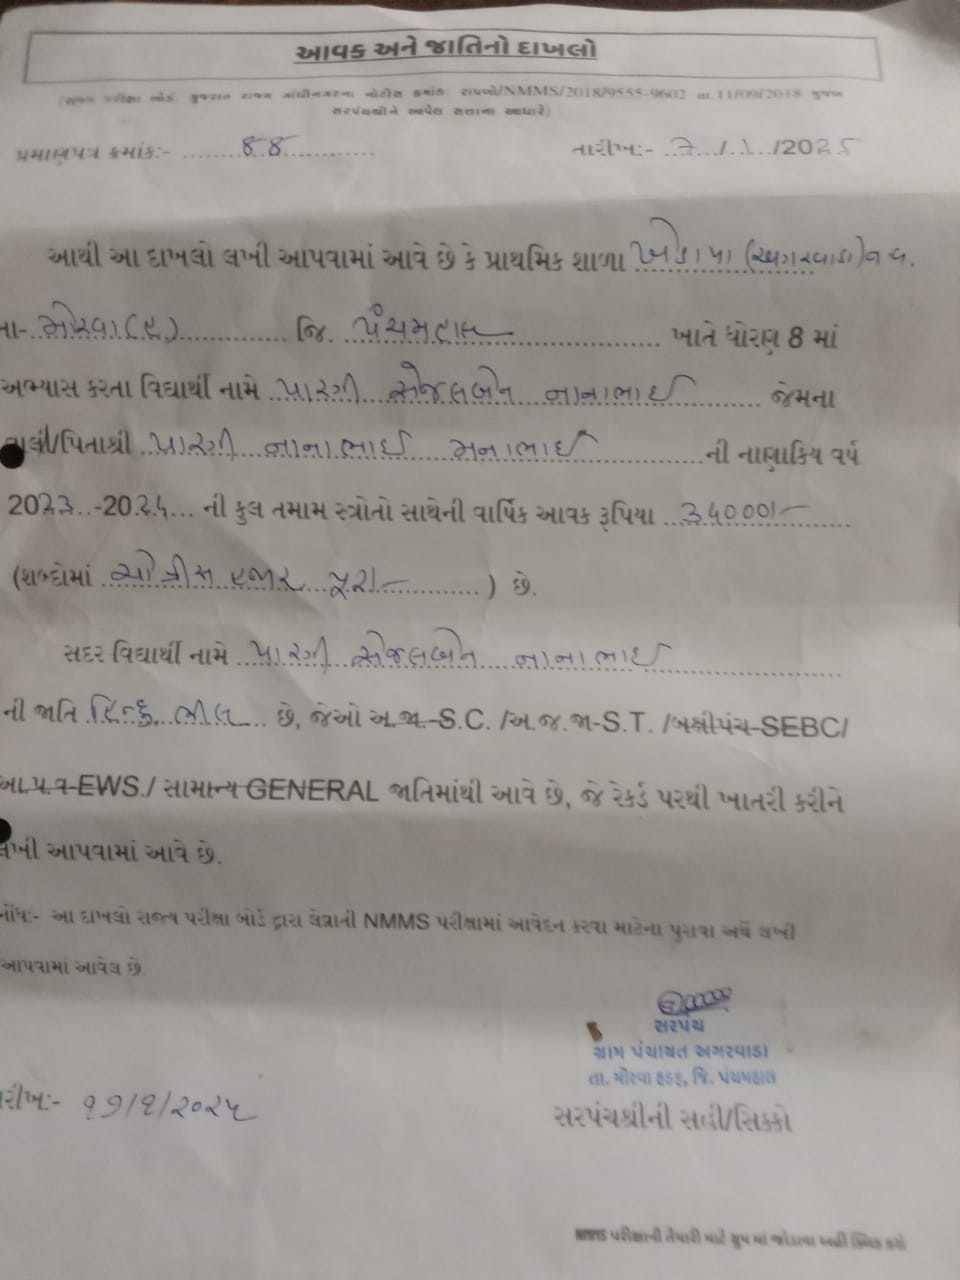 આવક અને જાતિનો દાખલો
(રાજ્ય પરીક્ષા બોર્ડ, ગુજરાત રાજ્ય ગાંધીનગરના નોટીસ ક્રમાંક: રાપબો/NMMS/2018/9555-9602 તા.11/09/2018 મુજબ
સરપંચશ્રીને આપેલ સત્તાના આધારે)
પ્રમાણપત્ર ક્રમાંક:- ૪૪
તારીખ:- /1/2025
આથી આ દાખલો લખી આપવામાં આવે છે કે પ્રાથમિક શાળા ખેડાપા (અગરવાડા) વ.
તા- મોરવા(હ) જિ. પંચમહાલ ખાતે ધોરણ 8 માં
અભ્યાસ કરતા વિદ્યાર્થી નામે પારગી સેજલબેન નાનાભાઈ જેમના
વાલી/પિતાશ્રી પારગી નાનાભાઈ મનાભાઈ ની નાણાકિય વર્ષ
2023-2024 ની કુલ તમામ સ્ત્રોતો સાથેની વાર્ષિક આવક રૂપિયા 34000/-
(શબ્દોમાં ચોત્રીસ હજાર પુરા) છે.
સદર વિદ્યાર્થી નામે પારગી સેજલબેન નાનાભાઈ
ની જાતિ હિન્દુ ભીલ છે, જેઓ અ.જા.-S.C. /અ.જ.જા-S.T. /બક્ષીપંચ-SEBC/
આ.પ.વ-EWS./ સામાન્ય GENERAL જાતિમાંથી આવે છે, જે રેકર્ડ પરથી ખાતરી કરીને
લખી આપવામાં આવે છે.
નોંધ:- આ દાખલો રાજ્ય પરીક્ષા બોર્ડ દ્વારા લેવાતી NMMS પરીક્ષામાં આવેદન કરવા માટેના પુરાવા અર્થે લખી
આપવામાં આવેલ છે.
સરપંચ
ગ્રામ પંચાયત અગરવાડા
તા. મોરવા હડફ, જિ. પંચમહાલ
તારીખ:- ૧૭/૧/૨૦૨૫
સરપંચશ્રીની સહી/સિક્કો
NMMS પરીક્ષાની તૈયારી માટે ગ્રુપ માં જોડાવા અહીં ક્લિક કરો